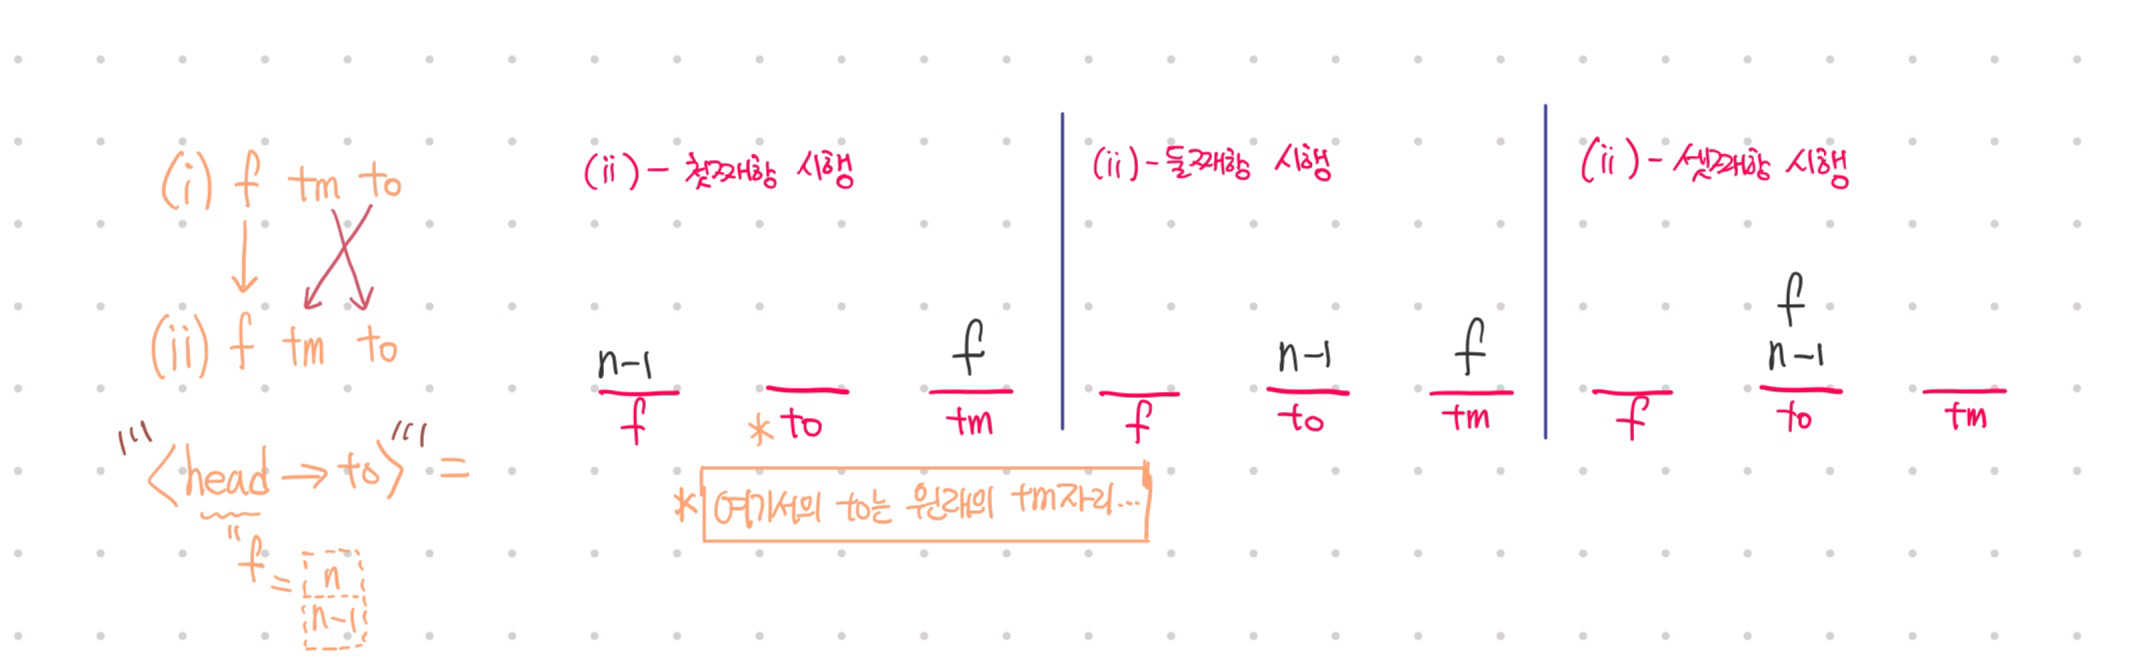 (i) f tm to
(ii) f tm to
"<head → to>" =
"f = n
n-1
(ii) - 첫째항 시행
n-1 f
f * to tm
* 여기서의 to는 원래의 tm자리...
(ii) - 둘째항 시행
n-1 f
f to tm
(ii) - 셋째항 시행
f
n-1
f to tm